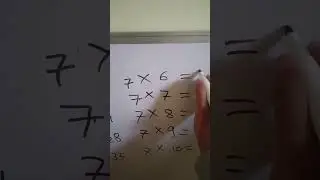 7 × 6 =
7 × 7 =
7 × 8 =
7 × 9 =
28
7 × 10 =
35